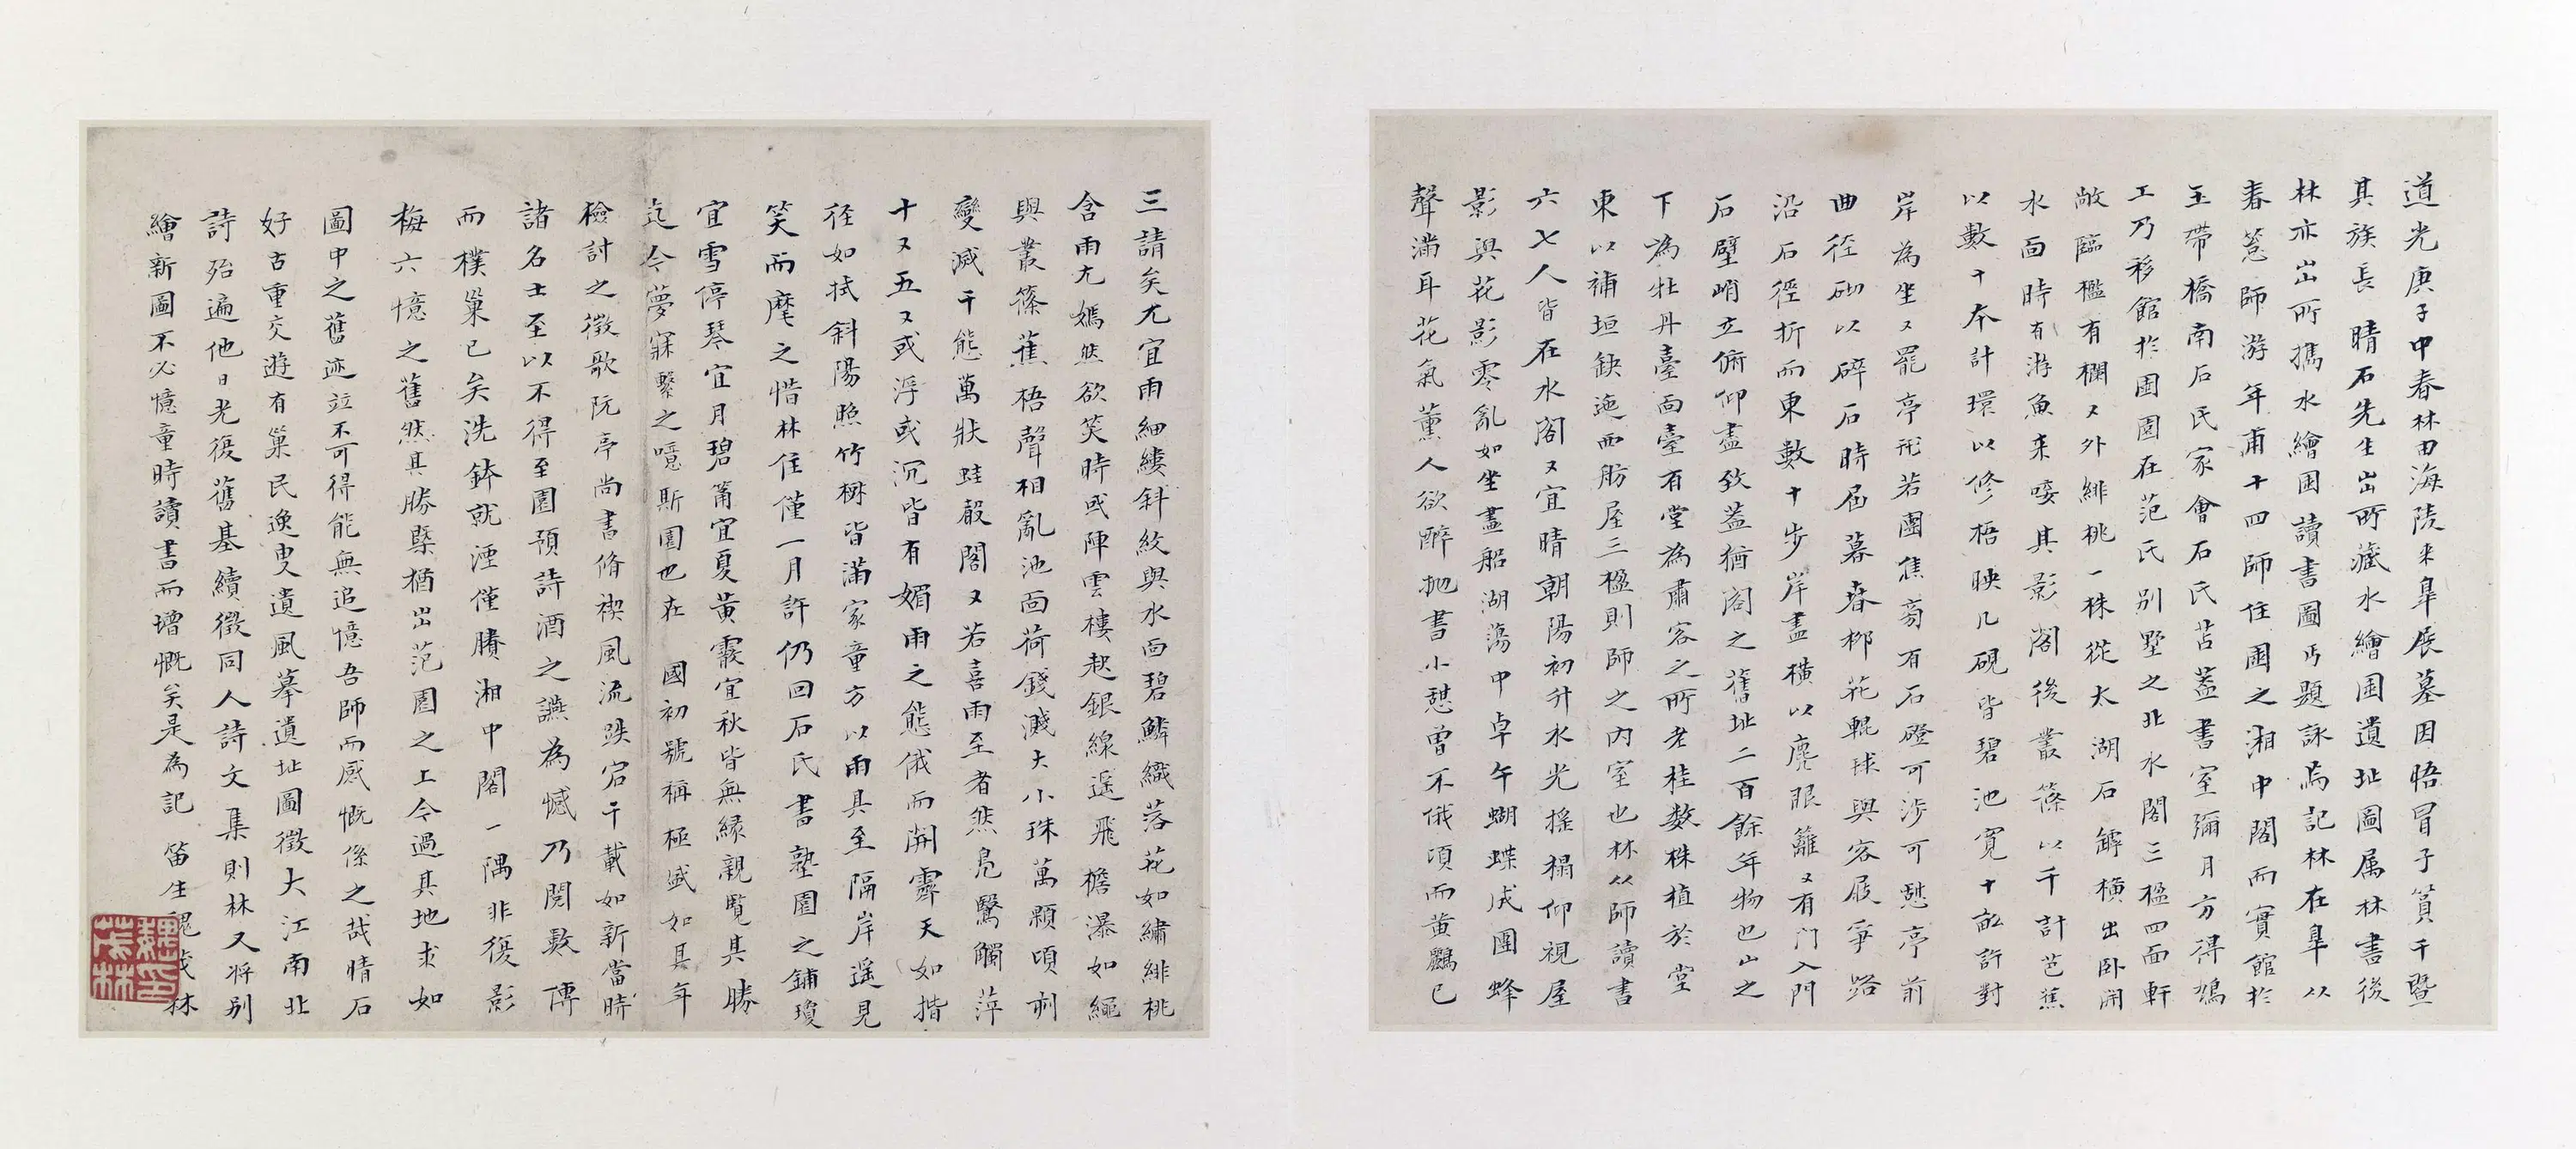 道光庚子中春林由海陵来皋展墓因悟冒子篔千暨
其族長 晴石先生出所藏水繪圖遺址圖属林書後
林亦出所攜水繪園讀書圖丐題詠焉記林在皋从
春薏師游年甫十四師住園之湘中閣而實館於
玉帶橋南石氏家會石氏苫蓋書室彌月方得鳩
工乃移館於園園在范氏别墅之北水閣三楹四面軒
敞臨檻有欄又外緋桃一株從太湖石罅橫出卧
水面時有游魚来唼其影閣後叢篠以千計芭蕉
以數十本計環以修梧映几硯皆碧池寬十畝許對
岸為坐又罷亭形若團焦旁有石磴可涉可憩亭前
曲徑砌以碎石時屆暮春柳花輥球與客屐爭路
沿石徑折而東數十步岸盡橫以麂眼籬又有門入門
石壁峭立俯仰盡致蓋猶閣之舊址二百餘年物也山之
下為牡丹臺面臺有堂為肅客之所老桂数株植於堂
東以補垣缺迤西舫屋三楹則師之内室也林从師讀書
六七人皆在水閣又宜晴朝陽初升水光搖榻仰視屋
影與花影零亂如坐畫船湖蕩中卓午蝴蝶成團蜂
聲滿耳花氣薰人欲醉抛書小憩曾不俄頃而黄鸝已
三請矣尤宜雨細縷斜紋與水面碧鱗織落花如繡緋桃
含雨尤嫣然欲笑時或陣雲樓起銀線遥飛檐瀑如繩
與叢篠蕉梧聲相亂池面荷錢濺大小珠萬顆頃刻
變減千態萬狀蛙鼓閣又若喜雨至者然鳧驚觸萍
十又五又或浮或沉皆有媚雨之態俄而開霽天如揩
径如拭斜陽照竹樹皆滿家童方以雨具至隔岸遥見
笑而麾之惜林住僅一月許仍回石氏書塾園之鋪瓊
宜雪停琴宜月碧筩宜夏黄霰宜秋皆無緣親覧其勝
迄今夢寐繫之噫斯園也在 國初號稱極盛如其年
檢討之徵歌阮亭尚書脩禊風流跌宕千載如新當時
諸名士至以不得至園預詩酒之讌為憾乃閲數傳
而樸巢已矣洗鉢就湮僅賸湘中閣一隅非復影
梅六憶之舊然其勝槩猶出范園之上今過其地求如
圖中之舊迹竝不可得能無追憶吾師而感慨係之哉晴石
好古重交遊有巢民逸叟遺風摹遺址圖徵大江南北
詩殆遍他日光復舊基續徵同人詩文集則林又将别
繪新圖不必憶童時讀書而增慨矣是為記 笛生魏茂林
魏印茂林